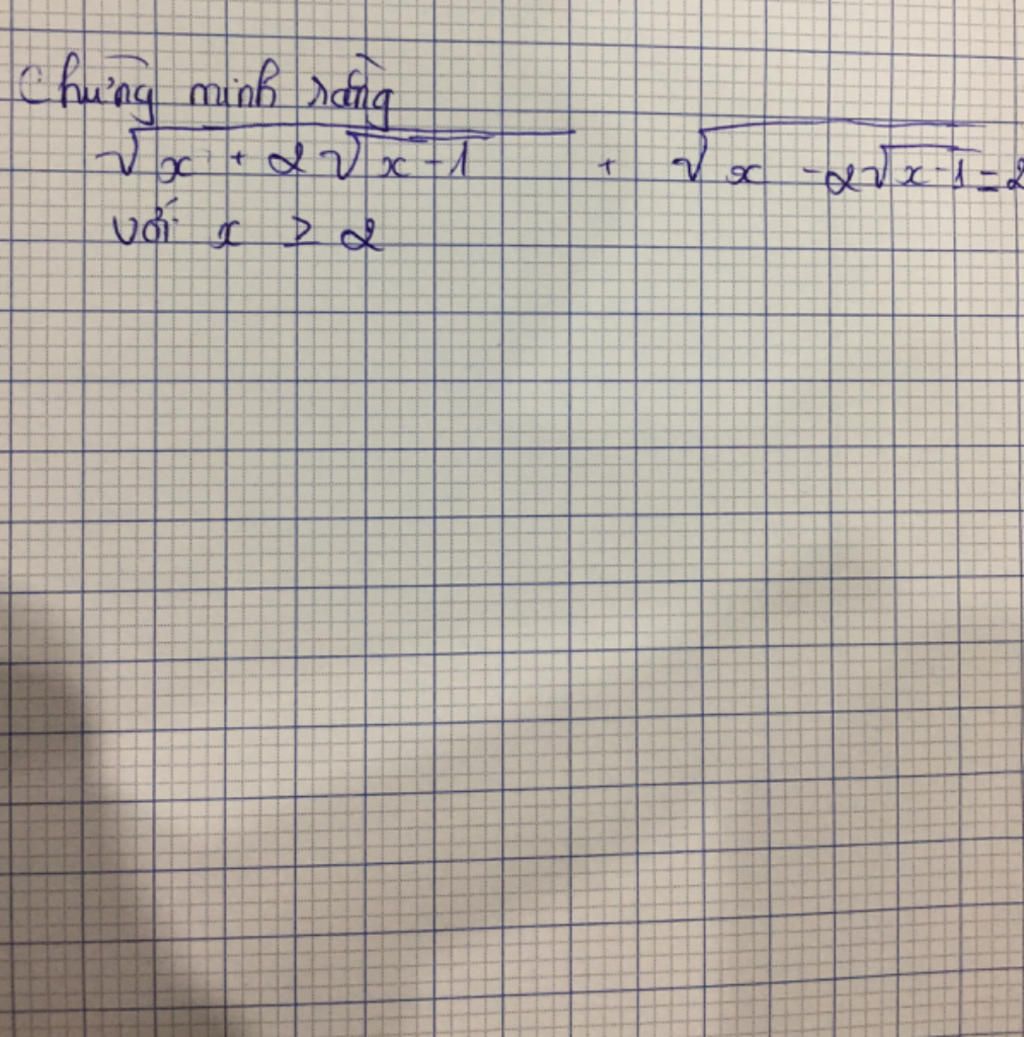 Chứng minh rằng
√(x + 2√(x-1)) + √(x - 2√(x-1)) = 2
với x ≥ 2